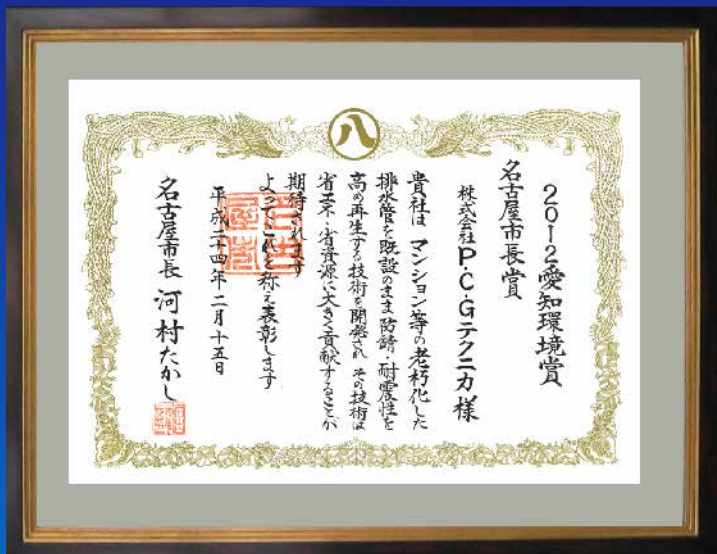 八
2012愛知環境賞
名古屋市長賞
株式会社P・C・Gテクニカ様
貴社は マンション等の老朽化した
排水管を既設のまま防錆・耐震性を
高め再生する技術を開発され その技術は
省エネ・省資源に大きく貢献することが
期待されます
よってこれを称え表彰します
平成二十四年二月十五日
名古屋市長 河村たかし